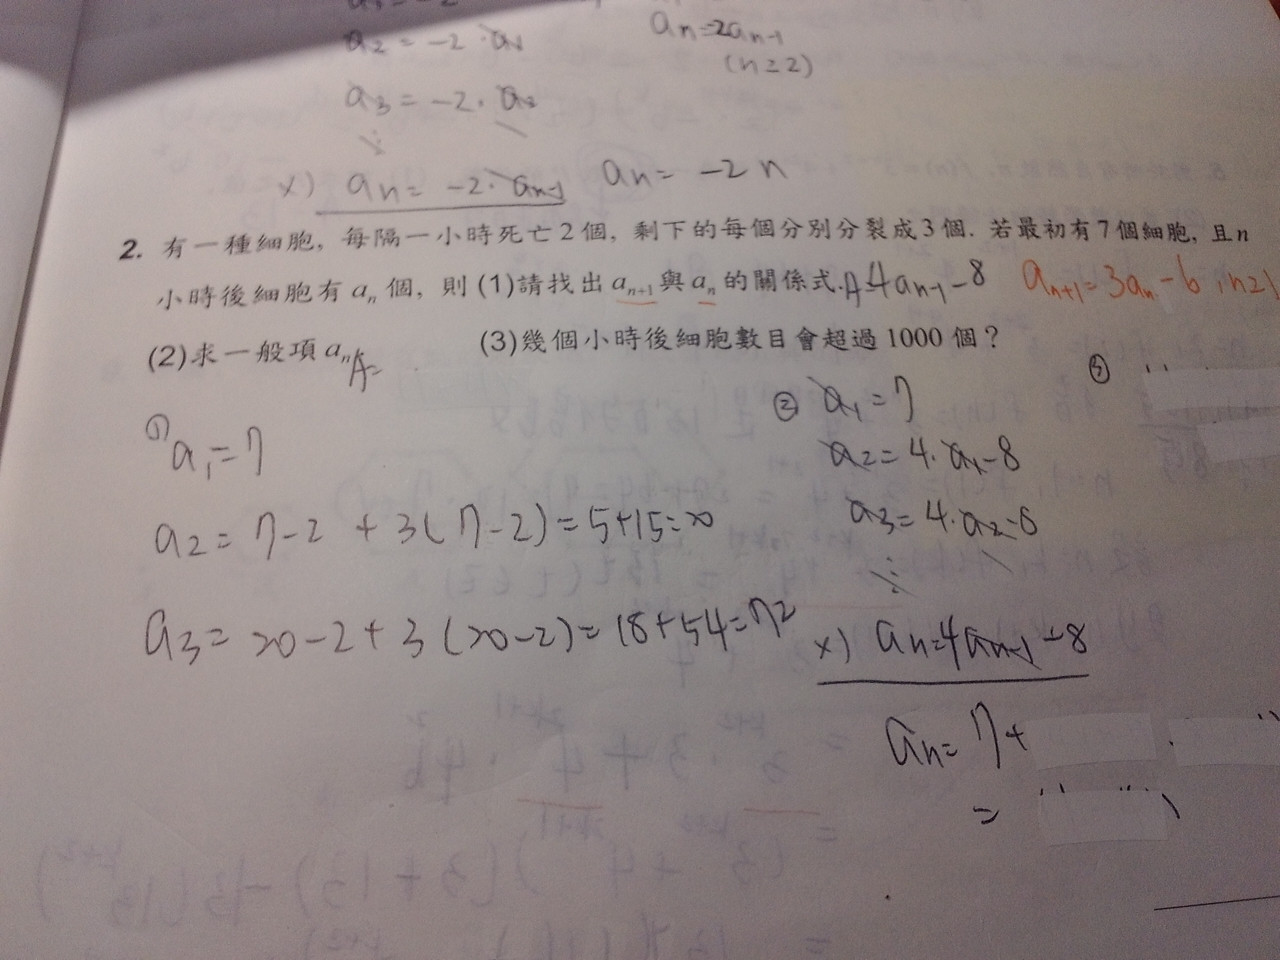 a₂ = -2 · a₁
aₙ = 2aₙ₋₁
(n ≥ 2)
a₃ = -2 · a₂
⋮
×) aₙ = -2 · aₙ₋₁ aₙ = -2n
2. 有一種細胞, 每隔一小時死亡2個, 剩下的每個分別分裂成3個. 若最初有7個細胞, 且n
小時後細胞有 aₙ 個, 則 (1)請找出 aₙ₊₁ 與 aₙ 的關係式. A 4aₙ₋₁-8 aₙ₊₁=3aₙ-6, n≥1
(2)求一般項 aₙ A= (3)幾個小時後細胞數目會超過 1000 個?
(1) a₁=7
a₂ = 7-2 + 3(7-2) = 5+15=20
a₃ = 20-2+3(20-2) = 18+54=72
② a₁=7
a₂=4·a₁-8
a₃=4·a₂-6
⋮
×) aₙ=4aₙ₋₁-8
aₙ= 7+
=